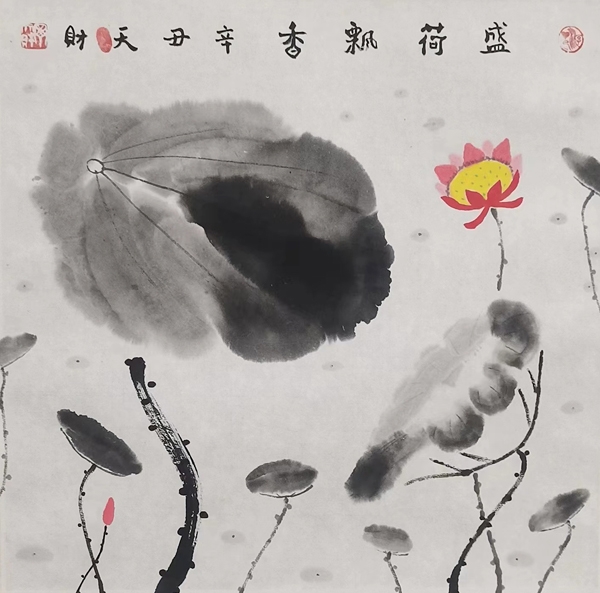 盛荷飘香辛丑天財